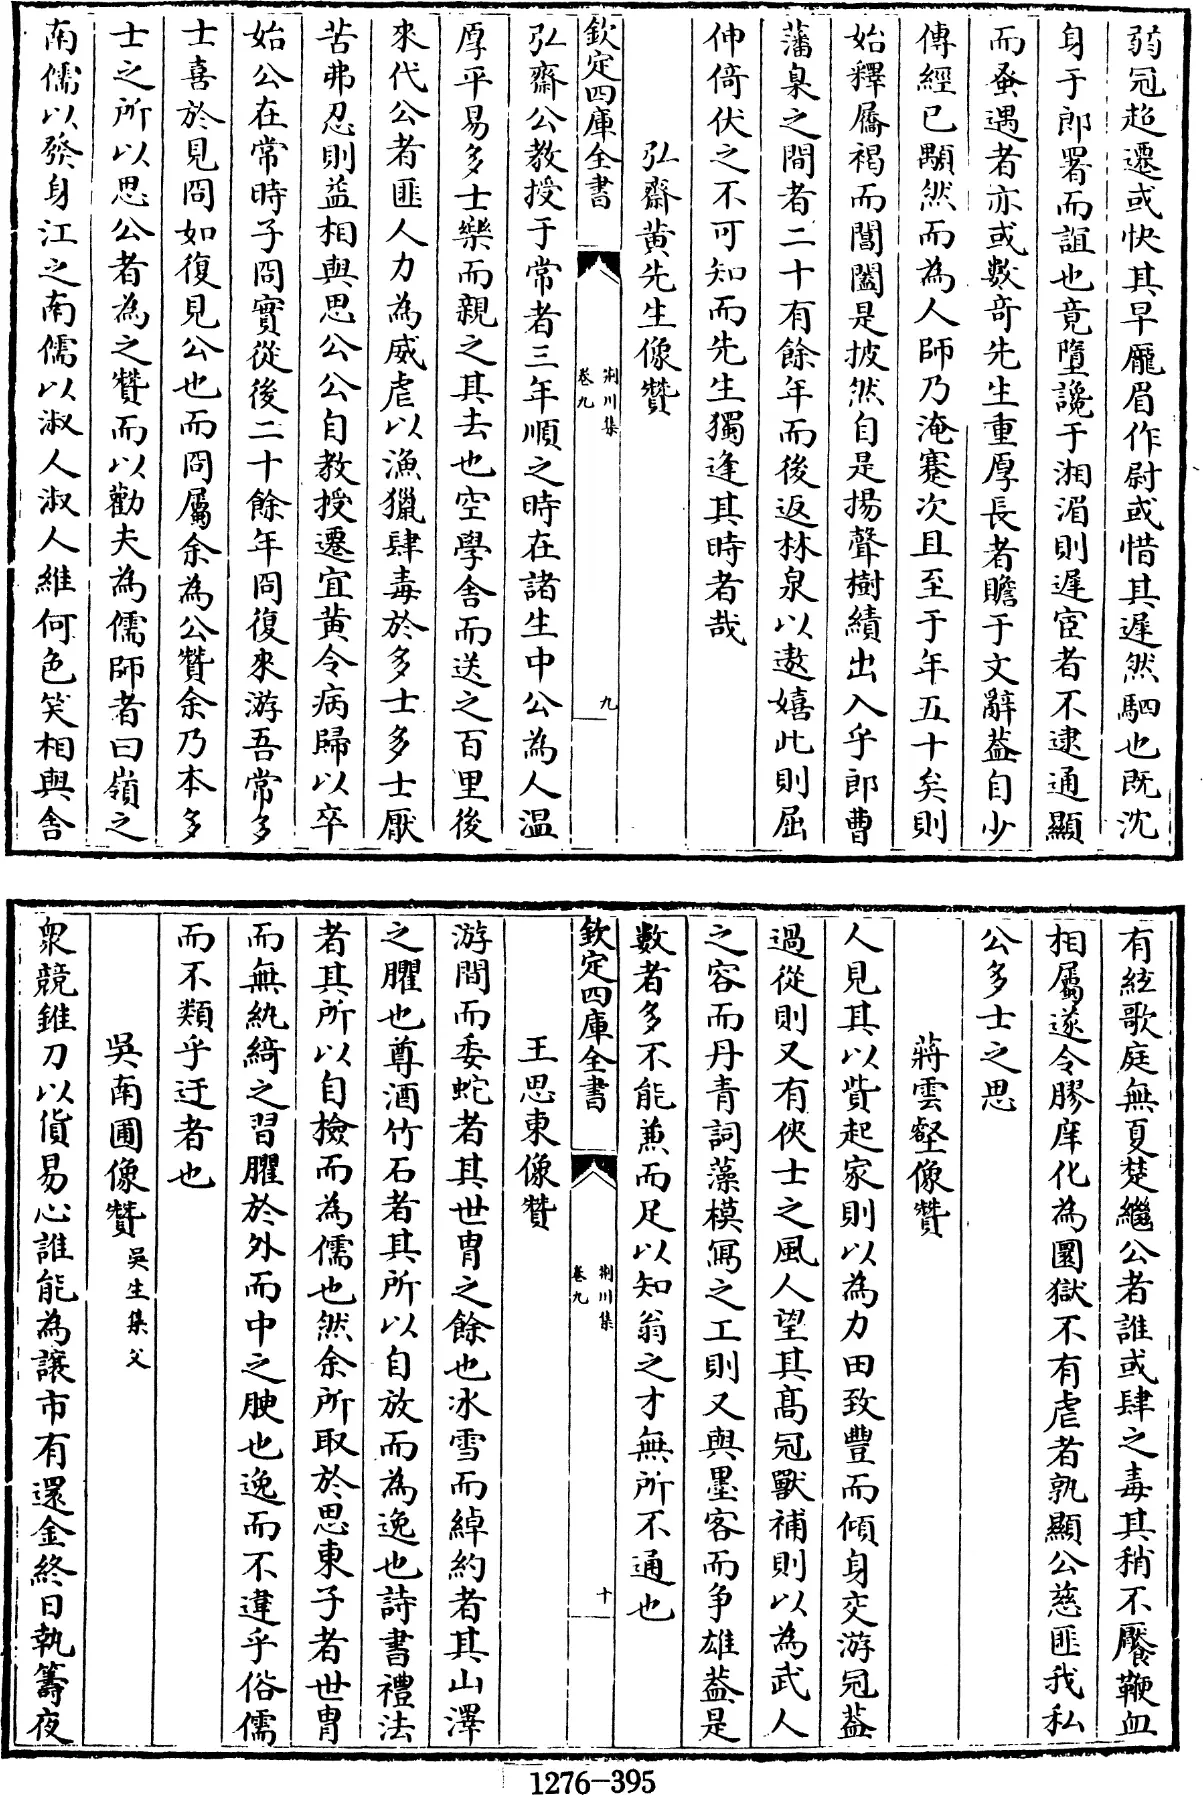 弱冠超遷或快其早龎眉作尉或惜其遲然駟也既沈
身于郎署而誼也竟墮讒于湘湄則遲宦者不逮通顯
而蚤遇者亦或數奇先生重厚長者瞻于文辭葢自少
傳經已顒然而為人師乃淹蹇次且至于年五十矣則
始釋屩褐而閶闔是披然自是揚聲樹績出入乎郎曹
藩臬之間者二十有餘年而後返林泉以遨嬉此則屈
伸倚伏之不可知而先生獨逢其時者哉
弘齋黄先生像贊
欽定四庫全書
荆川集
卷九
九
弘齋公教授于常者三年順之時在諸生中公為人温
厚平易多士樂而親之其去也空學舍而送之百里後
來代公者匪人力為威虐以漁獵肆毒於多士多士厭
苦弗忍則益相與思公公自教授遷宜黄令病歸以卒
始公在常時子冏實從後二十餘年冏復來游吾常多
士喜於見冏如復見公也而冏屬余為公贊余乃本多
士之所以思公者為之贊而以勸夫為儒師者曰嶺之
南儒以發身江之南儒以淑人淑人維何色笑相與舍
有絃歌庭無夏楚繼公者誰或肆之毒其稍不饜鞭血
相屬遂令膠庠化為圜獄不有虐者孰顯公慈匪我私
公多士之思
蔣雲壑像贊
人見其以貲起家則以為力田致豐而傾身交游冠葢
過從則又有俠士之風人望其髙冠獸補則以為武人
之容而丹青詞藻模冩之工則又與墨客而争雄葢是
數者多不能兼而足以知翁之才無所不通也
欽定四庫全書
荆川集
卷九
十
王思東像贊
游閒而委蛇者其世胄之餘也冰雪而綽約者其山澤
之臞也尊酒竹石者其所以自放而為逸也詩書禮法
者其所以自撿而為儒也然余所取於思東子者世胄
而無紈綺之習臞於外而中之腴也逸而不違乎俗儒
而不類乎迂者也
吳南圃像贊吳生集父
衆競錐刀以貨易心誰能為讓市有還金終日執籌夜
1276-395